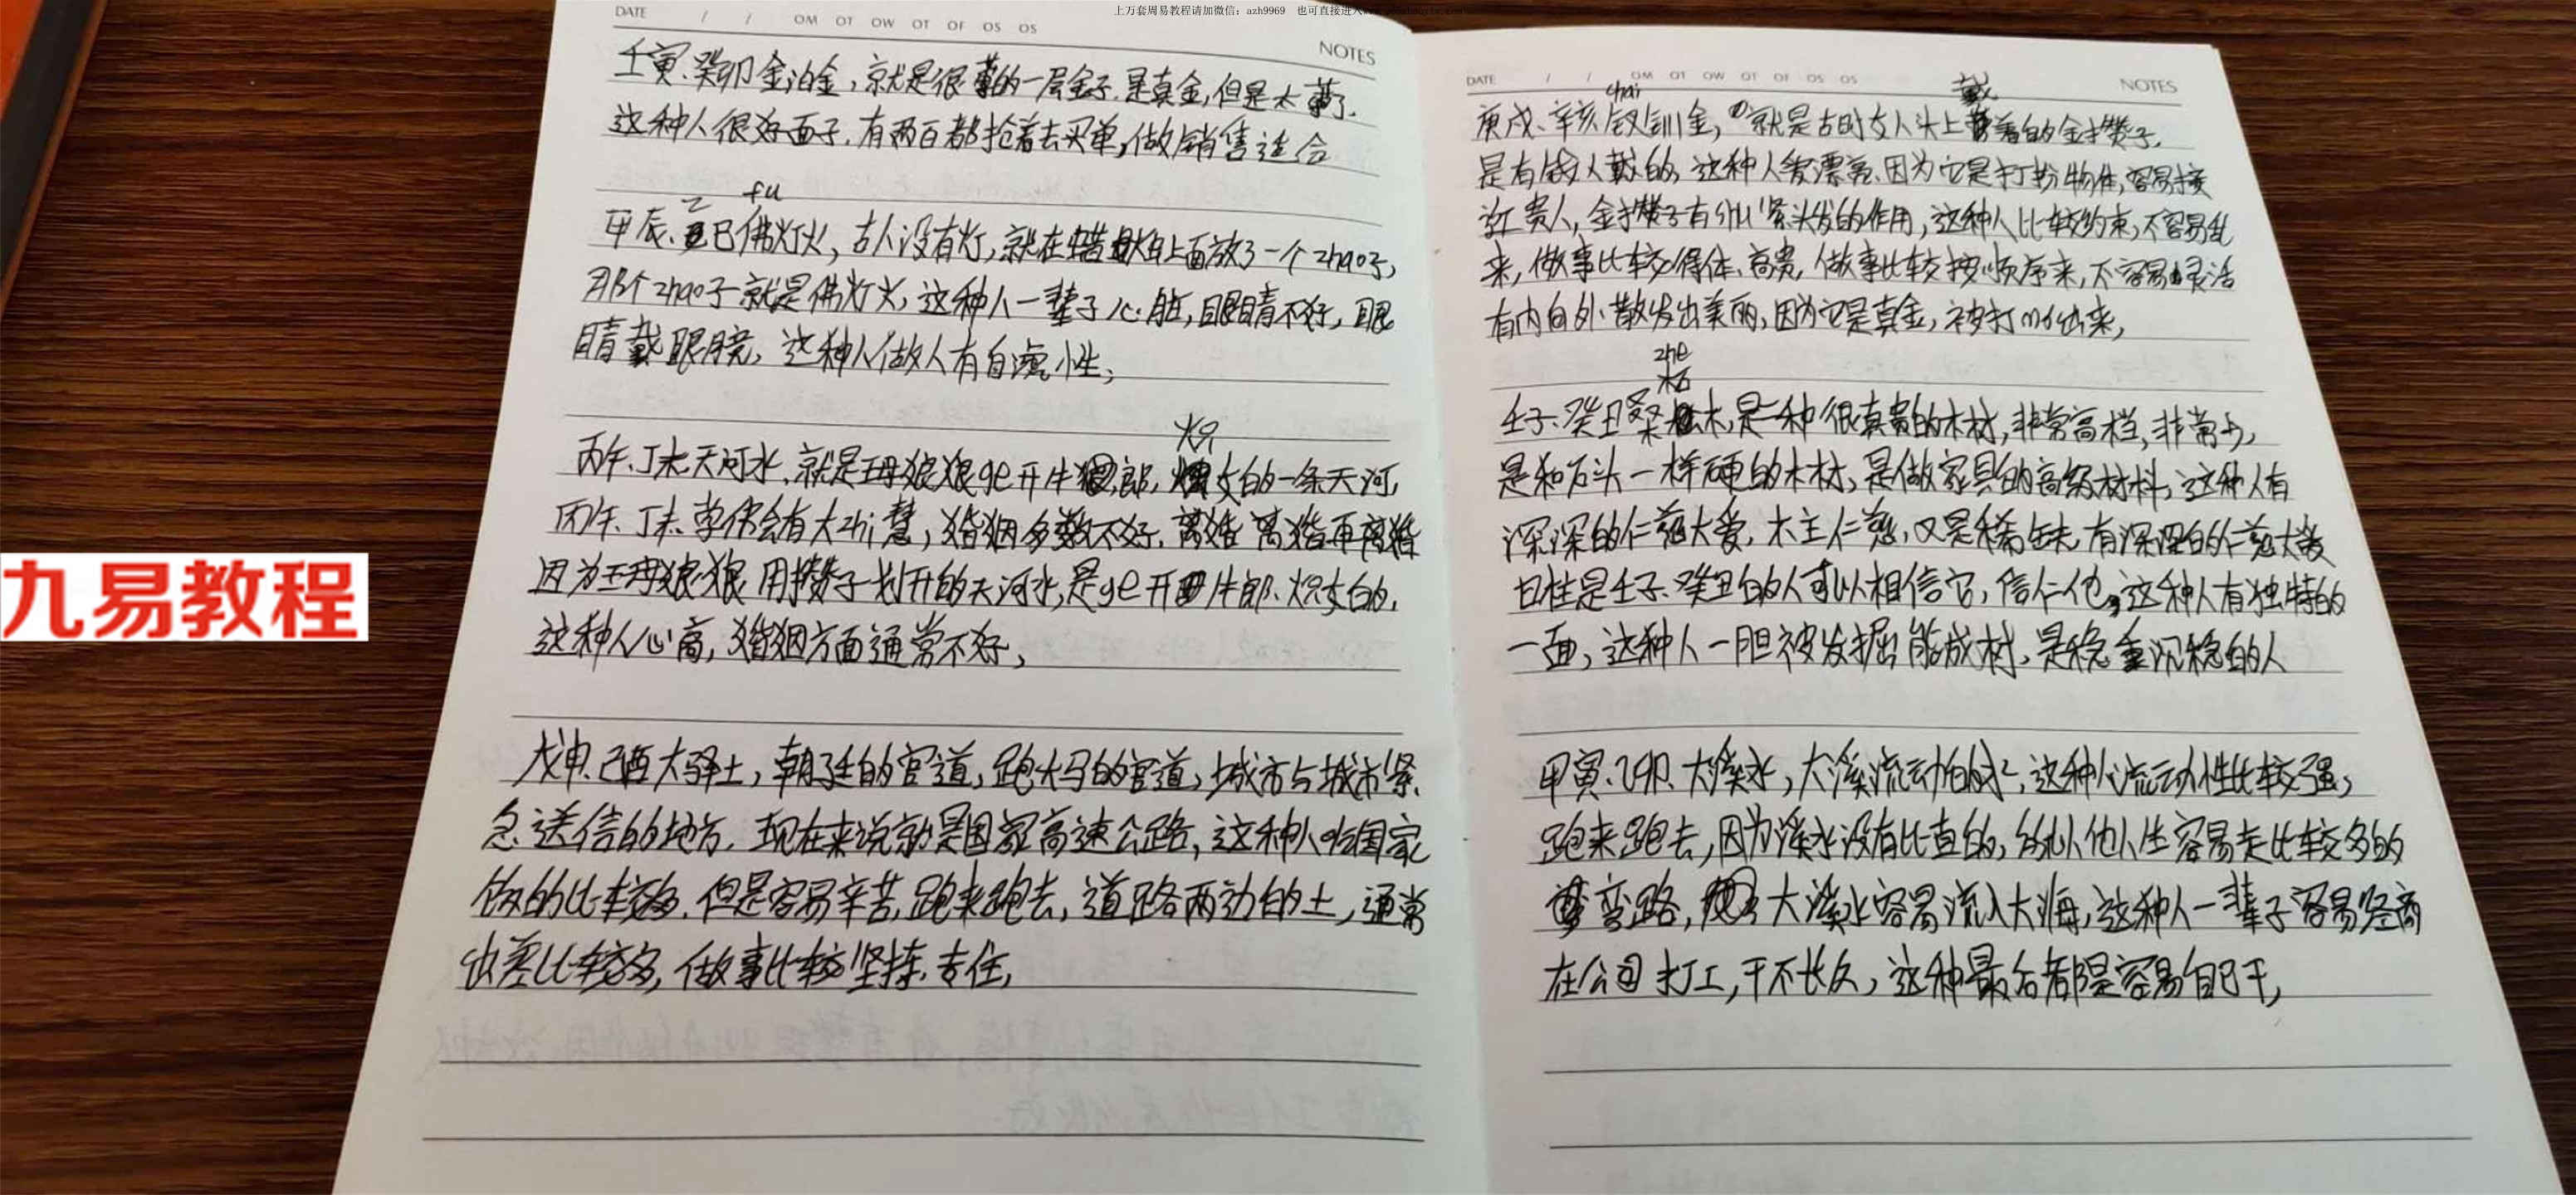 上万套周易教程请加微信：azh9969 也可直接进入
DATE / / OM OT OW OT OF OS OS
NOTES
壬寅、癸卯金泊金，就是很薄的一层金子.是真金,但是太薄了.
这种人很好面子.有两百都抢着去买单,做销售适合
乙 fu
甲辰、巳佛灯火，古人没有灯，就在蜡烛上面放了一个zhao子,
那个zhao子就是佛灯火，这种人一辈子心脏,眼睛不好，眼
睛戴眼睛，这种人做人有自虐性；
炽
丙午、丁未天河水.就是王母娘娘ge开牛郎，女的一条天河,
丙午、丁未.会有大zhi慧，婚姻多数不好.离婚 离婚再离婚
因为王母娘娘用攒子划开的天河水,是ge开牛郎、炽女的,
这种人心高，婚姻方面通常不好，
戊申、己酉大驿土，朝廷的官道，跑大马的官道，城市与城市紧
急送信的地方.现在来说就是国家高速公路，这种人吃国家
饭的比较多.但是容易辛苦,跑来跑去，道路两边的土，通常
出差比较多，做事比较坚持、专住,
九易教程
DATE / / OM OT OW OT OF OS OS
NOTES
chai 戴
庚戌、辛亥钗钏金，就是古时女人头上着的金攒子.
是有钱人戴的，这种人爱漂亮、因为它是打扮物件,容易接
近贵人，金攒子有紧头发的作用，这种人比较约束，不容易乱
来，做事比较得体、高贵，做事比较按顺序来，不容易灵活
有内自外散发出美丽，因为它是真金，被打mo出来，
zhe
柘
壬子、癸丑桑木,是一种很真贵的木材，非常高档，非常少，
是和石头一样硬的木材，是做家具的高级材料，这种人有
深深的仁慈大爱，木主仁慈，又是稀缺,有深深的仁慈大爱
日柱是壬子、癸丑的人可以相信它，信仁他，这种人有独特的
一面，这种人一胆被发掘能成材，是稳重沉稳的人
甲寅、乙卯、大溪水，大溪流动的水，这种人流动性比较强，
跑来跑去，因为溪水没有比直的，所以他人生容易走比较多的
弯路，大溪水容易流入大海，这种人一辈子容易经商
在公司打工，干不长久，这种最后都是容易自己干，